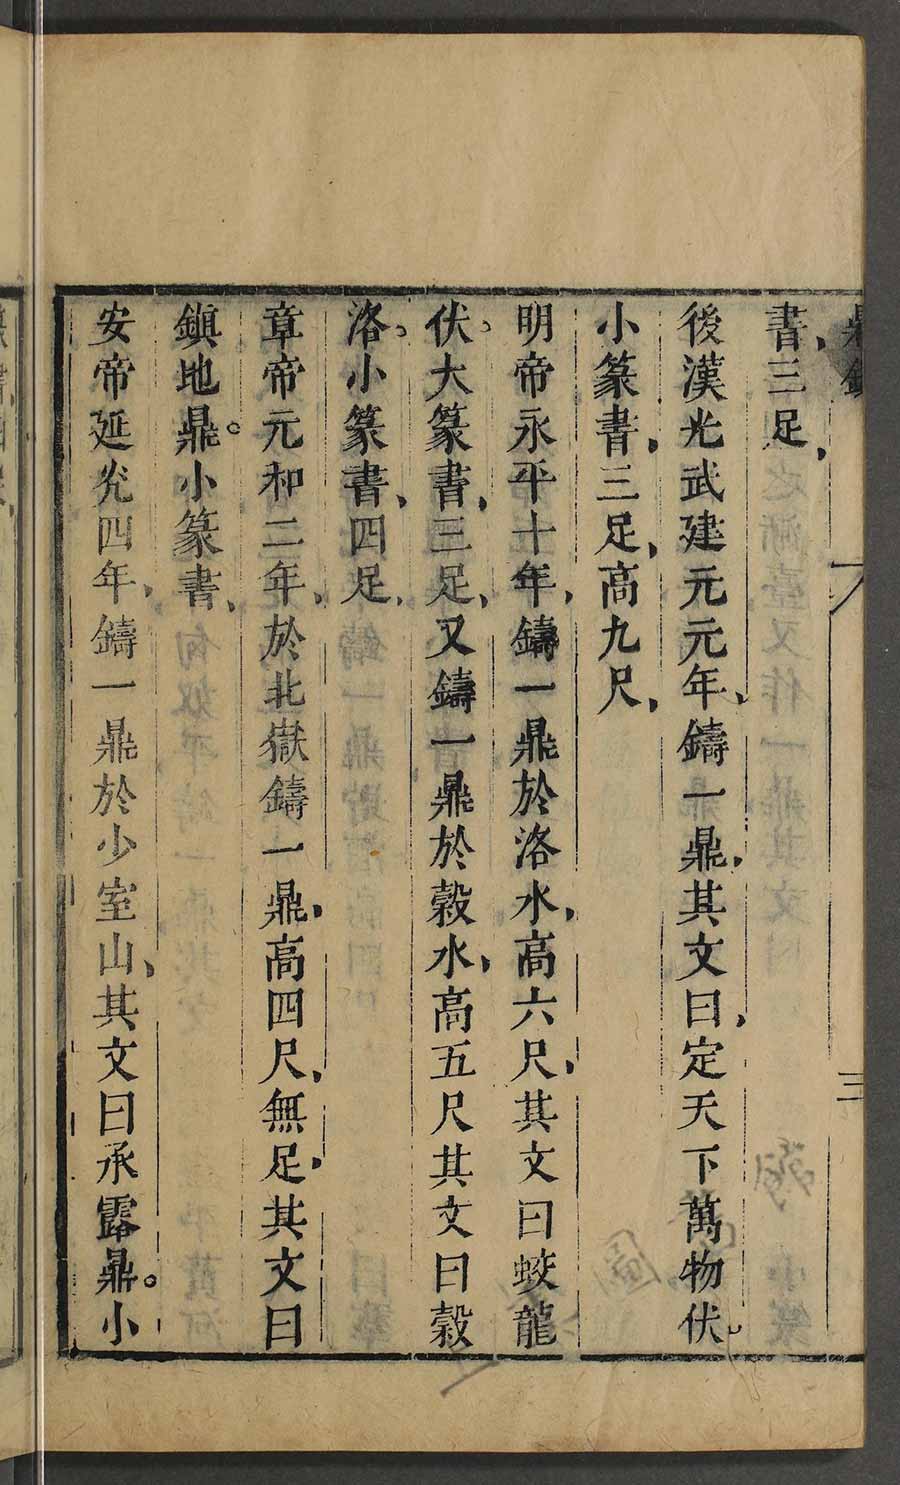 鼎錄
三
書、三足、
後漢光武建元元年、鑄一鼎、其文曰、定天下萬物伏。
小篆書、三足、高九尺、
明帝永平十年、鑄一鼎於洛水、高六尺、其文曰蛟龍
伏。大篆書、三足、又鑄一鼎於穀水、高五尺其文曰穀
洛。小篆書、四足、
章帝元和二年、於北嶽鑄一鼎、高四尺、無足、其文曰
鎮地鼎。小篆書、
安帝延光四年、鑄一鼎於少室山、其文曰承露鼎。小